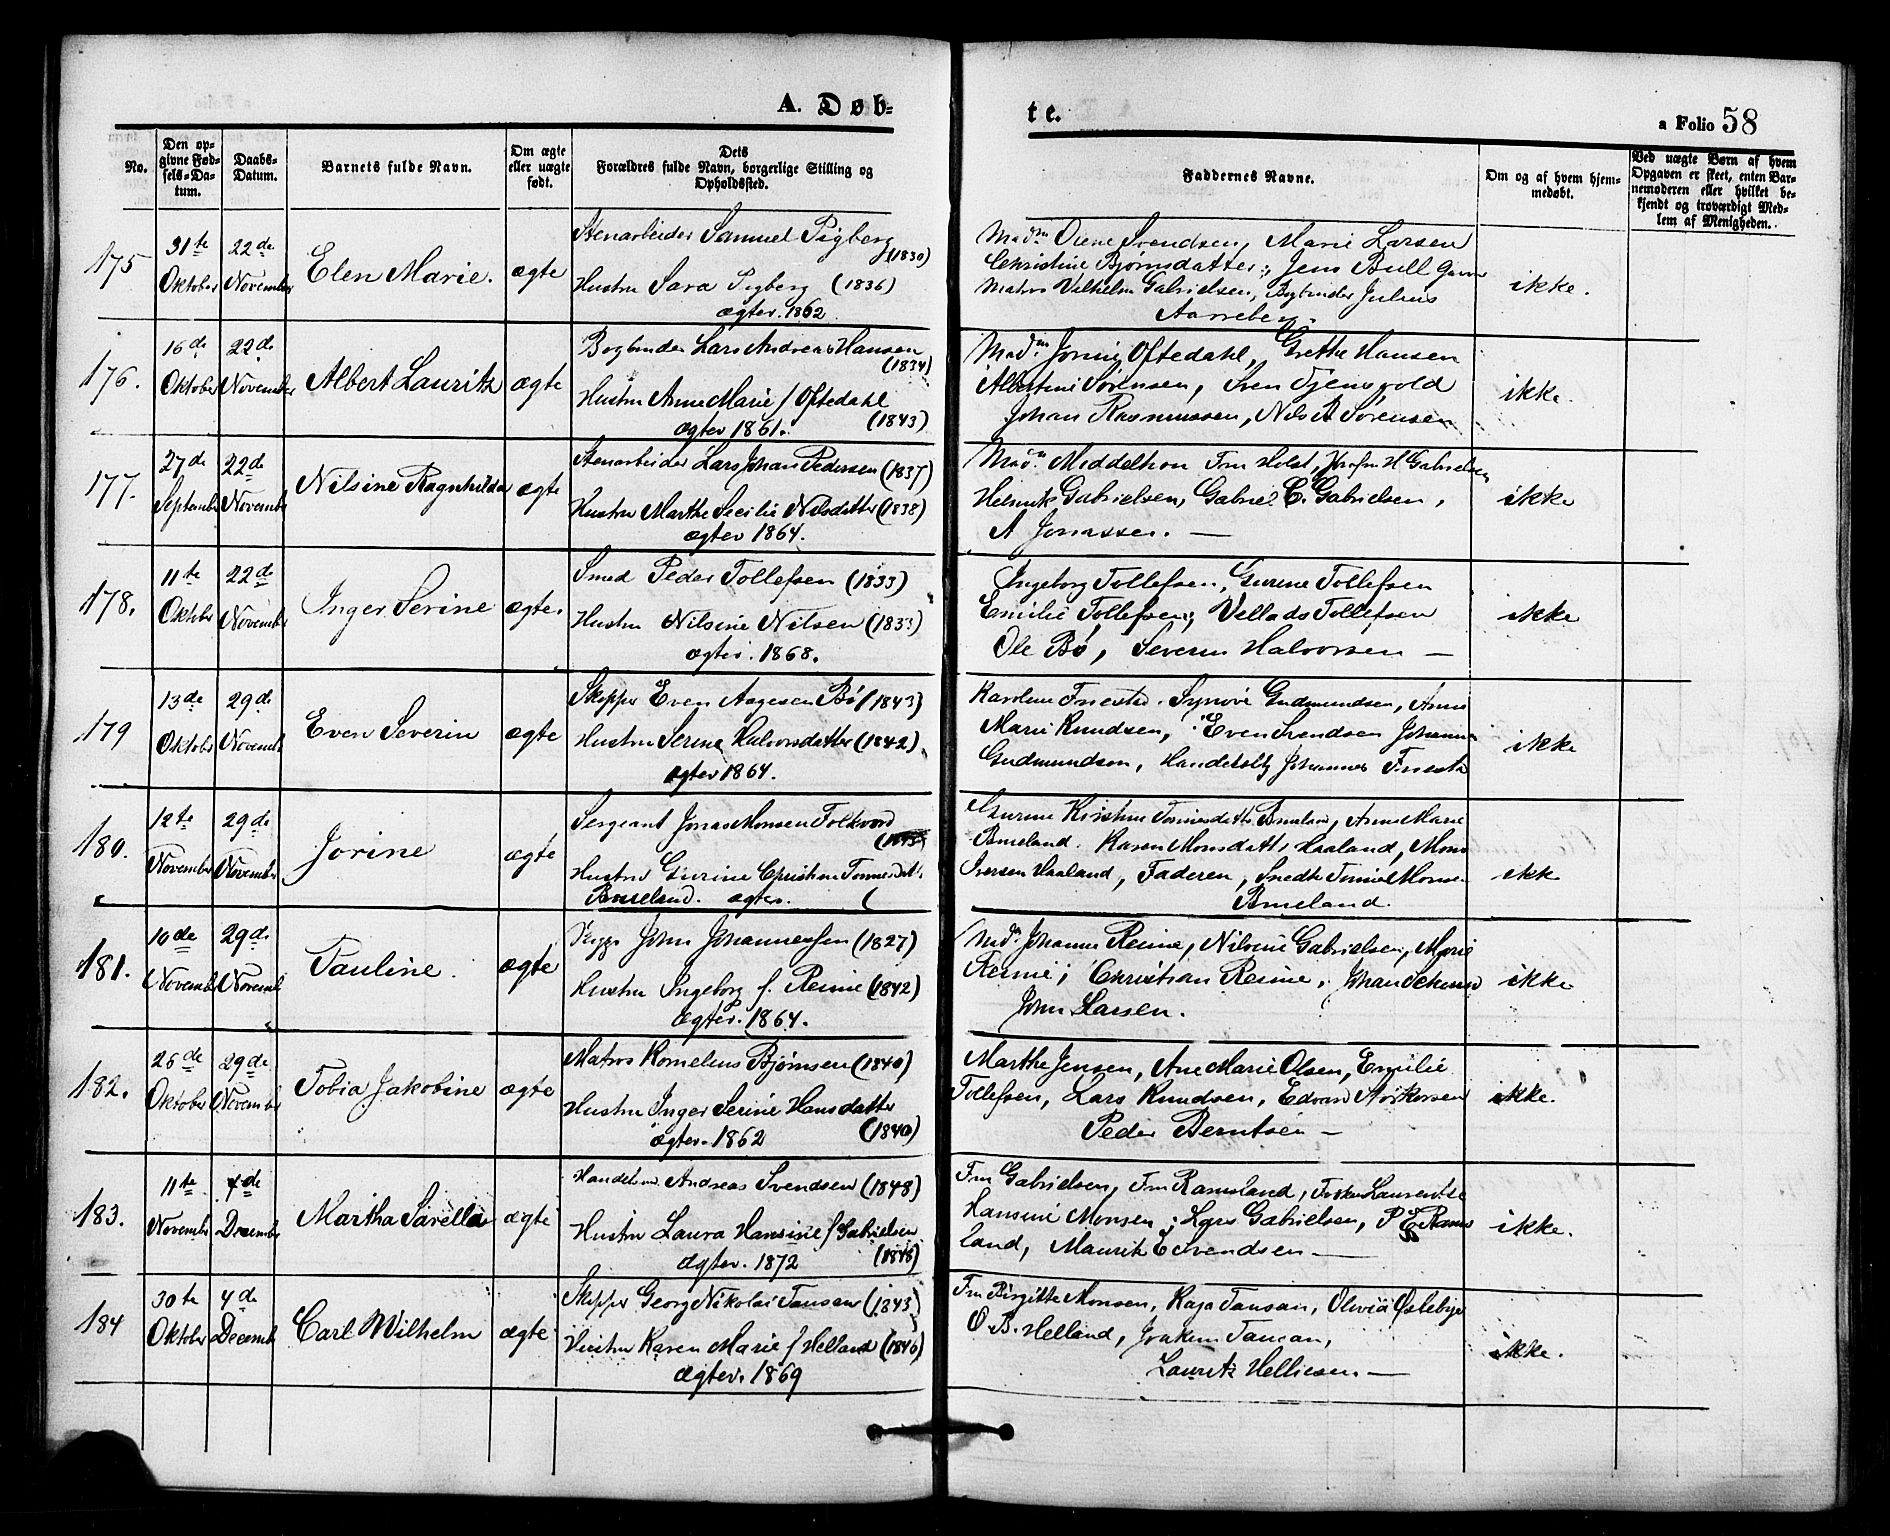 A. Døbte.
a Folio 58
No.
Den opgivne Fødsels-Datum.
Daabs-Datum.
Barnets fulde Navn.
Om ægte eller uægte født.
Dets Forældres fulde Navn, borgerlige Stilling og Opholdssted.
Faddernes Navne.
Om og af hvem hjemmedøbt.
Ved uægte Børn af hvem Opgaven er skeet, enten Barnemoderen eller hvilket bekjendt og troværdigt Medlem af Menigheden.
175 31te Oktober 22de November Elen Marie. ægte
Stenarbeider Samuel Sigberg (1830)
Hustru Sara Sigberg (1836)
ægtev. 1862
Madm Oiene Svendsen, Marie Larsen
Christine Bjørnsdatter, Jens Bull
Matros Vilhelm Gabrielsen, Bogbinder Julius
ikke.
176. 16de Oktober 22de November Albert Lauritz ægte
Bogbinder Lars Andreas Hansen
(1834)
Hustru Anne Marie f Oftedahl
ægtev 1861. (1843)
Madm Jorine Oftedahl, Grethe Hansen
Albertine Sørensen, Sven Tjensvold
Johan Rasmussen, Nils A Sørensen
ikke.
177. 27de September 22de November Nilsine Ragnhilda ægte
Stenarbeider Lars Johan Pedersen (1837)
Hustru Marthe Secilie Nilsdatter (1838)
ægtev 1864.
Madm Middelthon Fru Holst, H Gabrielsen
Henrik Gabrielsen, Gabriel C. Gabrielsen,
A Jonassen. —
ikke
178. 11te Oktober 22de November Inger Serine ægte.
Smed Peder Tollefsen (1833)
Hustru Nilsine Nilsen (1833)
ægtev. 1868.
Ingeborg Tollefsen, Gurine Tollefsen
Emilie Tollefsen; Vellads Tollefsen
Ole Bø, Severin Halvorsen —
ikke
179 13de Oktober 29de Novemb Even Severin ægte
Skipper Even Aagesen Bø (1843)
Hustru Serine Halvorsdatter (1842)
ægtev 1864.
Karoline Synøve Gudmundsen, Anne
Marie Knudsen, Even Svendsen Johannes
Gudmundsen, Johannes
ikke
180. 12te November 29de November Jorine ægte
Sergeant Jonas Monsen Folkvord
Hustru Gurine Christine
ægtev. (
Gurine Kirstine Anne Marie
Karen Monsdatter Haaland, Mons
Iversen Haaland, Faderen,
ikke
181. 10de Novemb 29de Novemb Pauline. ægte
John Johannessen (1827)
Hustru Ingeborg f. Reime (1842)
ægtev. 1864.
Md. Johanne Reime, Nilsine Gabrielsen, Marie
Reime; Christian Reime,
John Larsen.
ikke
182. 26de Oktober 29de November Tobia Jakobine ægte
Matros Kornelius Bjørnsen (1840)
Hustru Inger Serine Hansdatter
ægtev. 1862 (1840)
Marthe Jensen, Ane Marie Olsen, Emilie
Tollefsen, Lars Knudsen, Edvard
Peder Berntsen —
ikke.
183. 11te November 4de December Martha Sarella ægte
Handelsm. Andreas Svendsen (1848)
Hustru Laura Hansine f Gabrielsen
ægtev. 1872 (1848)
Fru Gabrielsen, Fru Ramsland, Frøken Laurentse
Hansine Monsen; Lars Gabrielsen, P E Rams
land, Mauritz E Svendsen —
ikke.
184 30te Oktober 4de Decemb Carl Wilhelm ægte
Skipper Georg Nikolai Tansen (1843)
Hustru Karen Marie f Helland (1840)
ægtev. 1869
Fru Birgitte Monsen, Kaja Tansan, Olivia Østebye
O. B. Helland, Joakim Tansan,
Lauritz Helliesen. —
ikke.